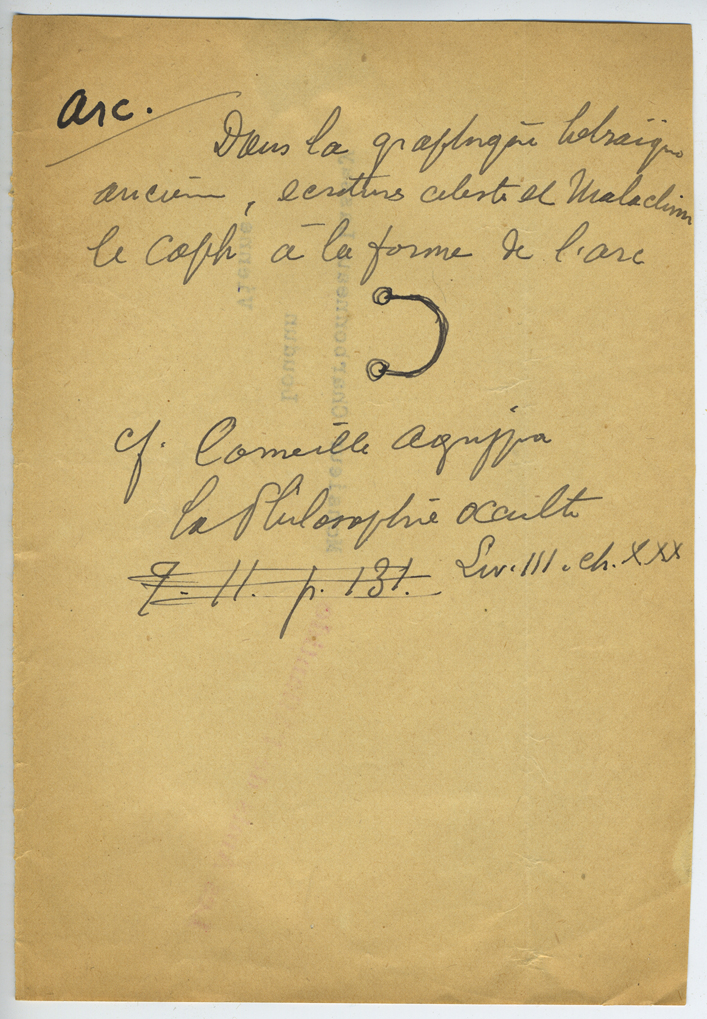 arc.
Dans la graphique hébraïque
ancienne, ecriture celeste et Malachim
le Caph à la forme de l'arc
cf. Corneille Agrippa
la Philosophie occulte
T. II. p. 131. Liv. III. ch. XXX
Vienne
Loudun